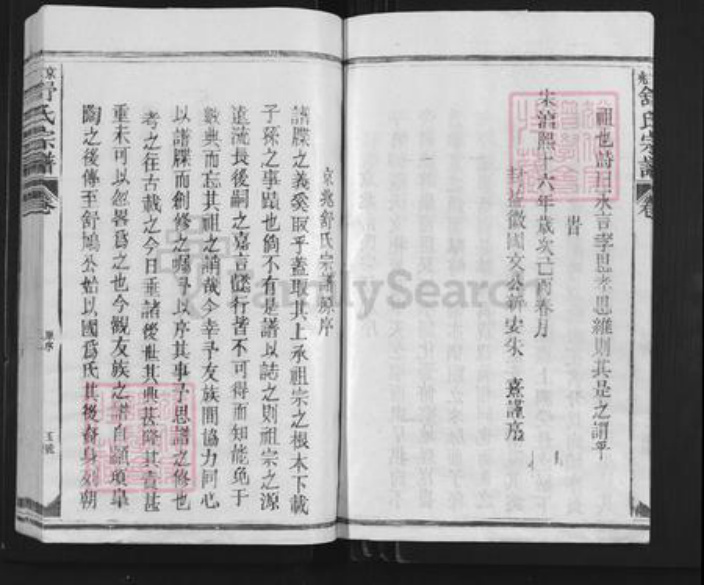 祖也詩曰永言孝思孝思維則其是之謂乎
旹
宋淳熙十六年歲次己酉春月
封徽國文公新安朱熹謹序
京兆舒氏宗譜原序
譜牒之義奚取乎蓋取其上承祖宗之根本下載
子孫之事蹟也倘不有是譜以誌之則祖宗之源
遠流長後嗣之嘉言懿行皆不可得而知能免于
數典而忘其祖之誚哉今幸予友族間協力同心
以譜牒而創修之囑予以序其事予思譜之修也
考之往古載之今日垂諸後世其典甚隆其責甚
重未可以忽畧爲之也今觀友族之譜自顓頊臯
陶之後傳至舒鳩公始以國爲氏其後奇身列朝
京
舒氏宗譜
卷
原序
玉號
舒氏宗譜
卷
FamilySearch